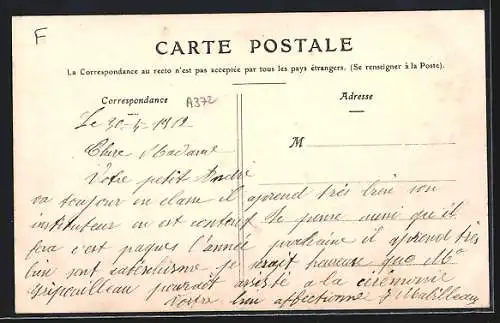 F
CARTE POSTALE
La Correspondance au recto n'est pas acceptée par tous les pays étrangers. (Se renseigner à la Poste).
Correspondance
A372
Adresse
Le 30-4-1912
M
Chere Madame
Votre petit André
va toujour en classe il aprend très bien son
instituteur en est content Je pense aussi qu'il
fera c'est paques l'année prochaine il aprend très
bien sont catéchisme je serait heureux que Mr
Gripouilleau pourrait assisté a la cérémonie
Votre bien affectionné